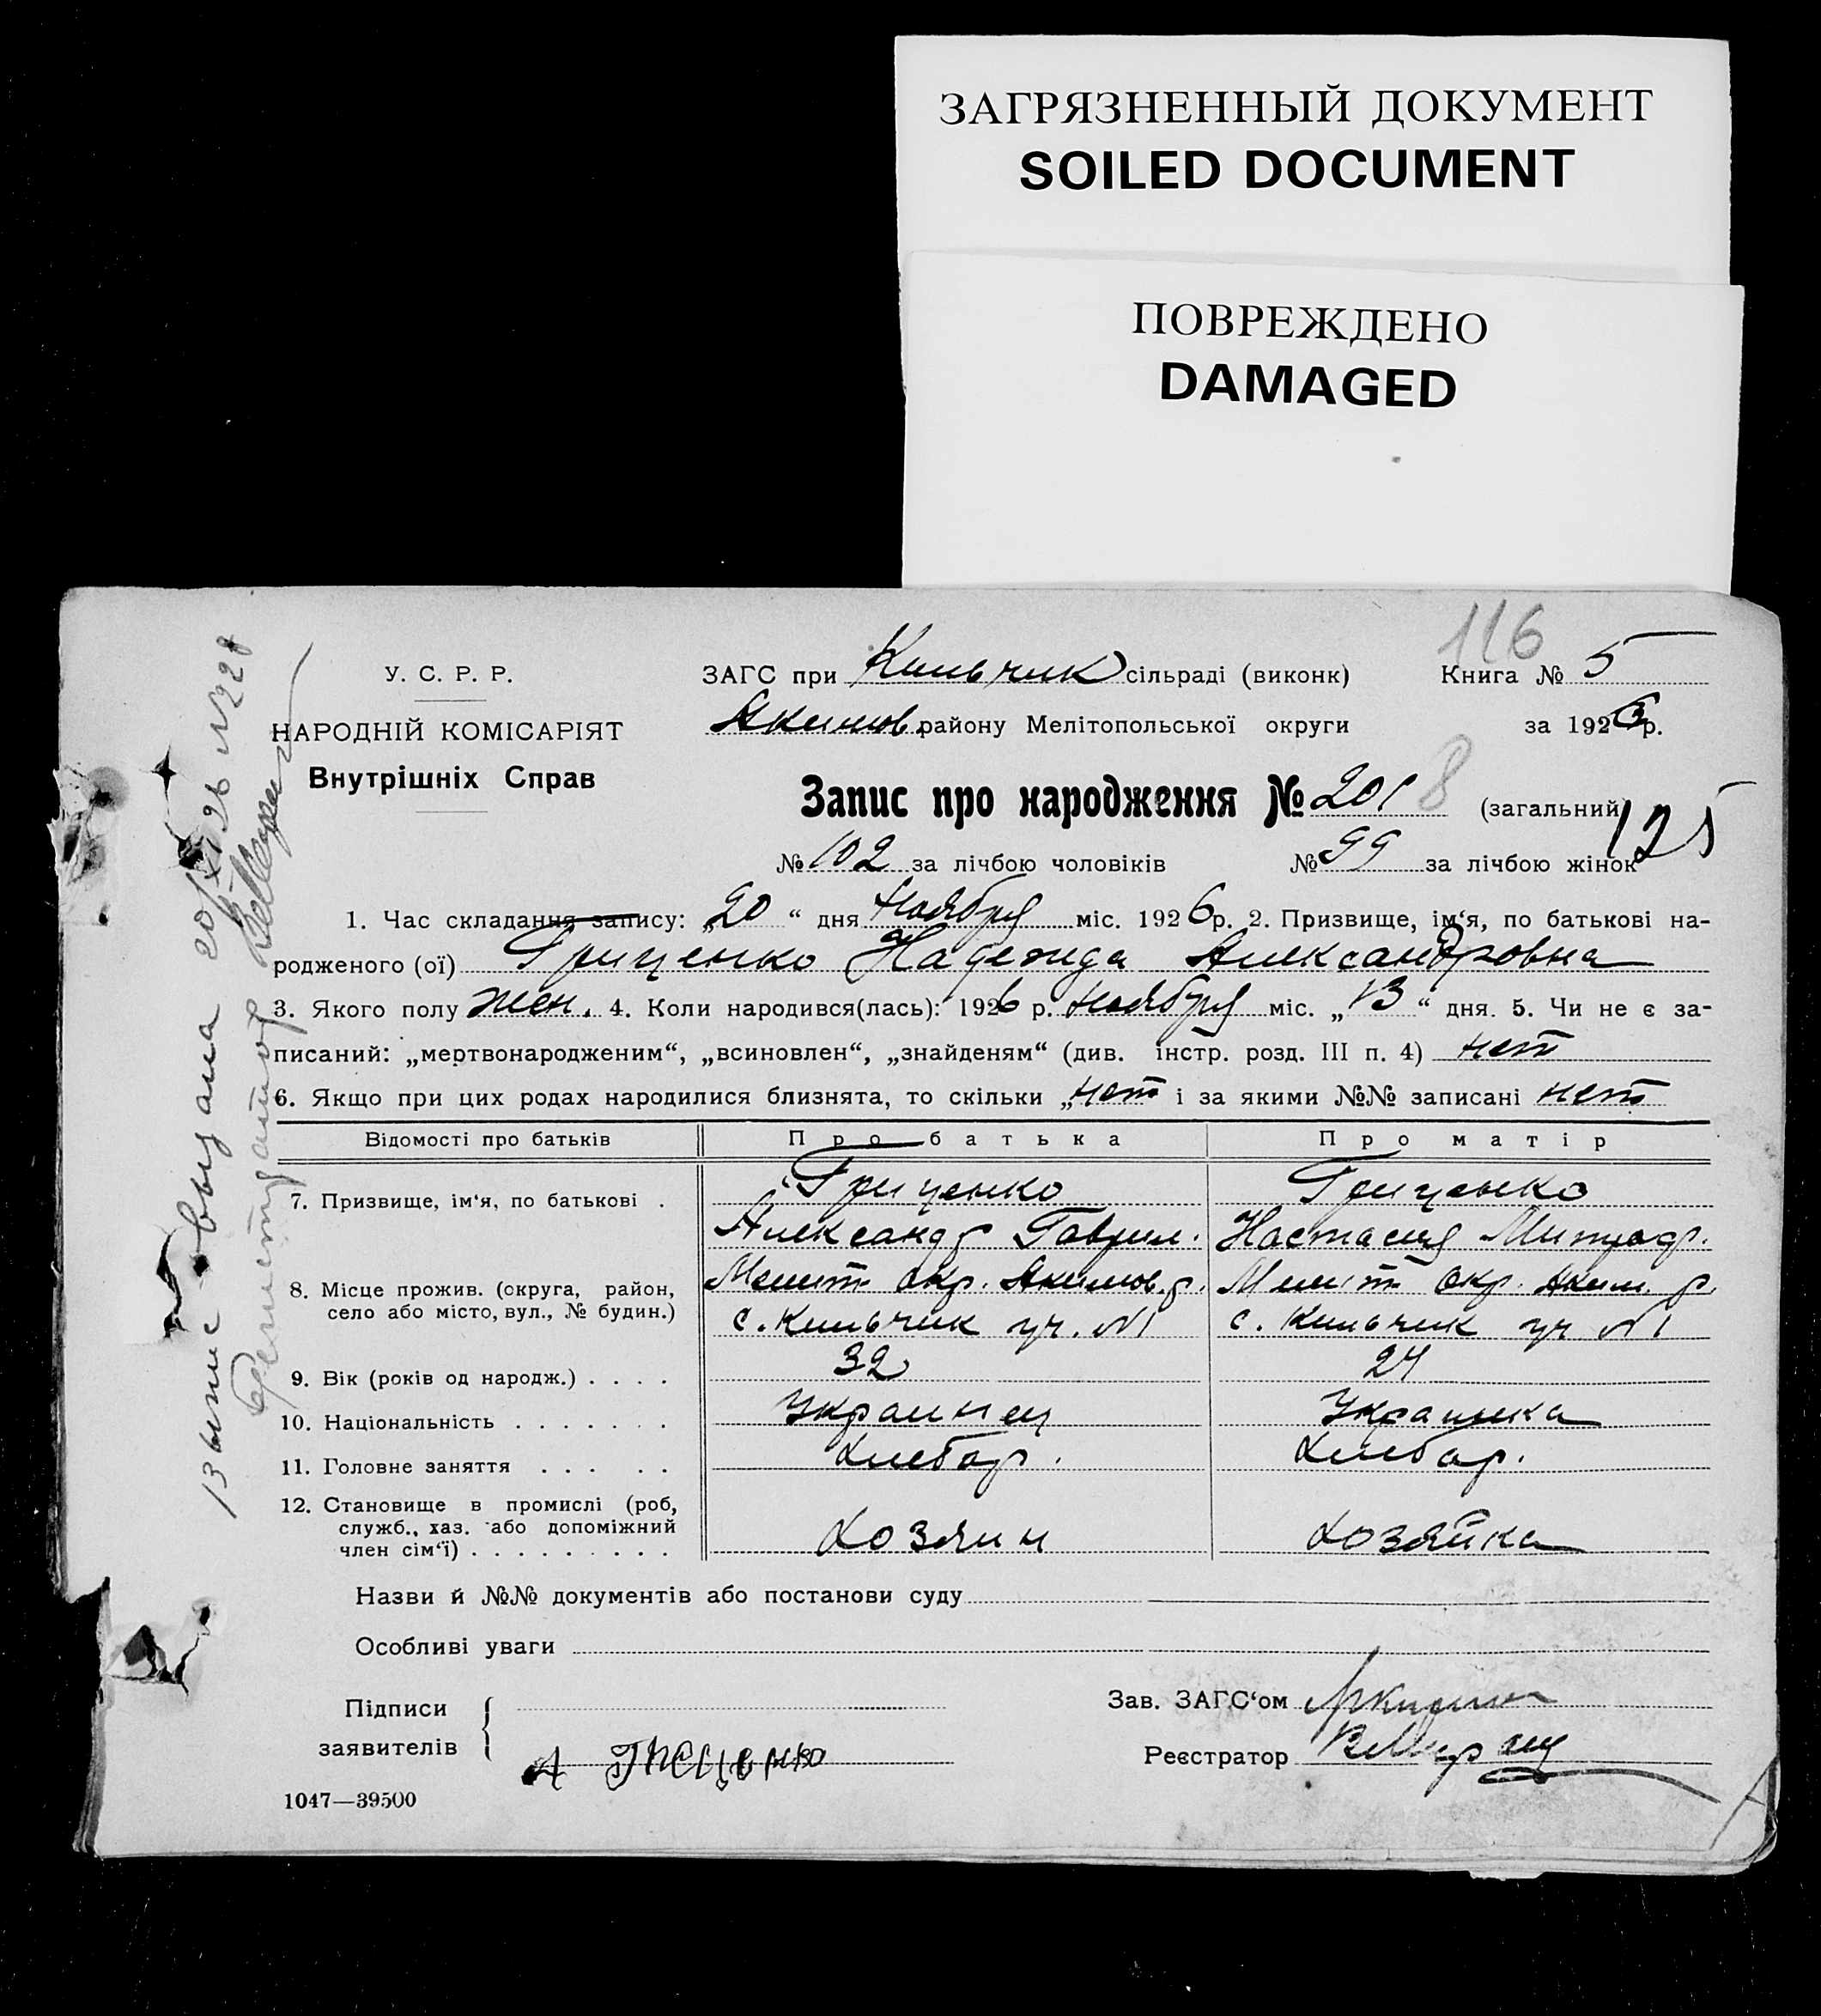 ЗАГРЯЗНЕННЫЙ ДОКУМЕНТ
SOILED DOCUMENT
ПОВРЕЖДЕНО
DAMAGED
116
У. С. Р. Р.
НАРОДНІЙ КОМІСАРІЯТ
Внутрішніх Справ
ЗАГС при Кильчик сільраді (виконк)
Книга № 5
Якимов. району Мелітопольської округи
за 1926 р.
Запис про народження № 201 8 (загальний)
125
№ 102 за лічбою чоловіків № 99 за лічбою жінок
1. Час складання запису: „20“ дня Ноября міс. 1926 р. 2. Призвище, ім‘я, по батькові на-
родженого (ої) Гриценко Надежда Александровна
3. Якого полу жен. 4. Коли народився(лась): 1926 р. Ноября міс. „13“ дня. 5. Чи не є за-
писаний: „мертвонародженим“, „всиновлен“, „знайденям“ (див. інстр. розд. III п. 4) нет
6. Якщо при цих родах народилися близнята, то скільки „нет і за якими №№ записані нет
Відомості про батьків Про батька Про матір
7. Призвище, ім‘я, по батькові . Гриценко Гриценко
Александр Гаврил. Настасия Митроф.
8. Місце прожив. (округа, район, Мелит окр. Акимов. р. Мелит окр. Аким. р.
село або місто, вул., № будин.) с. Кильчик уч. №1 с. Кильчик уч №1
9. Вік (років од народж.) . . . . 32 24
10. Національність . . . . . . . Украинец Украинка
11. Головне заняття . . . . . Хлебор. Хлебор.
12. Становище в промислі (роб,
служб., хаз. або допоміжний
член сім‘ї) . . . . . . . . . Хозяин Хозяйка
Назви й №№ документів або постанови суду
Особливі уваги
Підписи
заявителів
А Гриценко
Зав. ЗАГС‘ом
Реєстратор
1047—39500
Выпис выдана 20/XI 26 №228